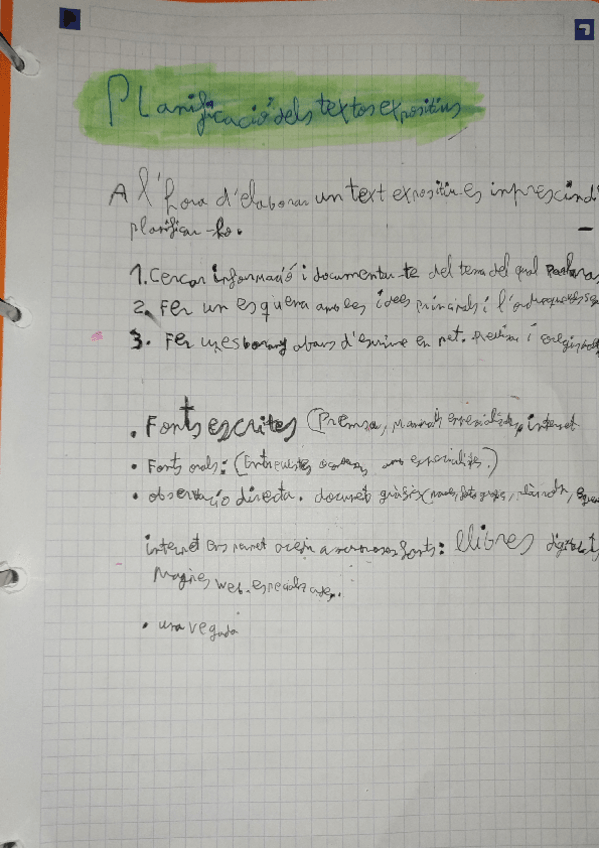 Planificació dels textos expositius
A l'hora d'elaborar un text expositiu es imprescindi
planificar-ho.
1. Cercar informació i documentar-te del tema del qual parlaras
2. Fer un esquema amb les idees principals i l'ordre
3. Fer un esborrany abans d'escriure en net. revisar i corregir
• Fonts escrites (Premsa, manuals especialitzats, internet
• Fonts orals: (Entrevistes especialistes.)
• observació directa. documet gràfix (mapes, fotografies,
internet ens permet accedir a nombroses fonts: llibres digitals,
Pàgines web. especialitzades.
• una vegada